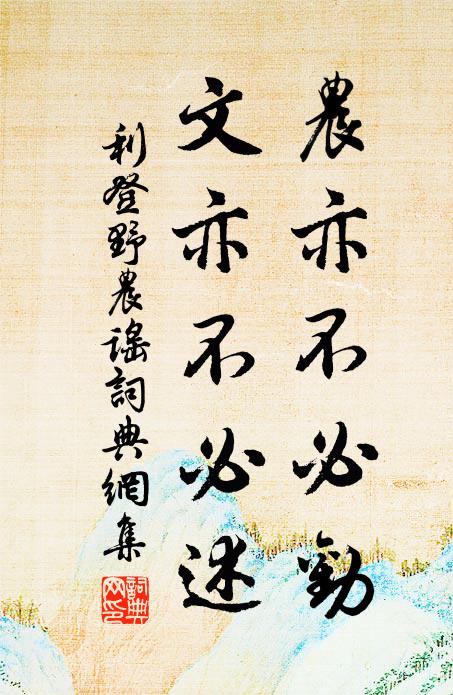 農亦不必勸
文亦不必述
利登野農謠詞典網集
詞典
网印